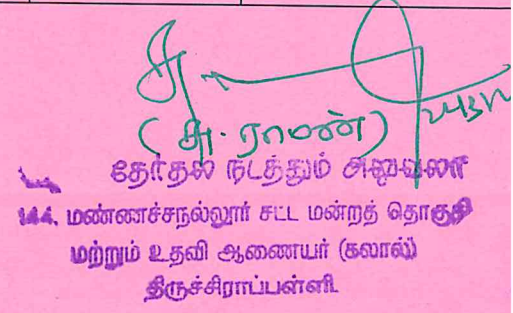 சு
24/3/21
( சு. ராமன் )
தேர்தல் நடத்தும் அலுவலர்
144. மண்ணச்சநல்லூர் சட்ட மன்றத் தொகுதி
மற்றும் உதவி ஆணையர் (கலால்)
திருச்சிராப்பள்ளி.